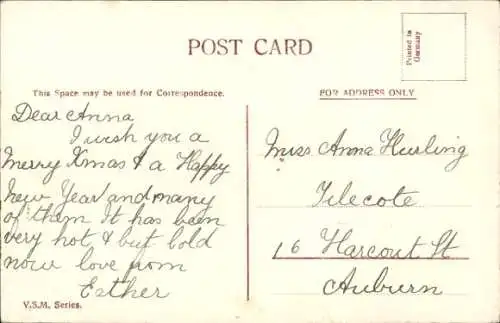 POST CARD
Printed in
Germany
This Space may be used for Correspondence.
FOR ADDRESS ONLY
Dear Anna
I wish you a
Merry Xmas & a Happy
New Year and many
of them It has been
very hot, & but cold
now love from
Esther
V.S.M. Series.
Miss Anna Hurling
Tilecote
16 Harcourt St
Auburn